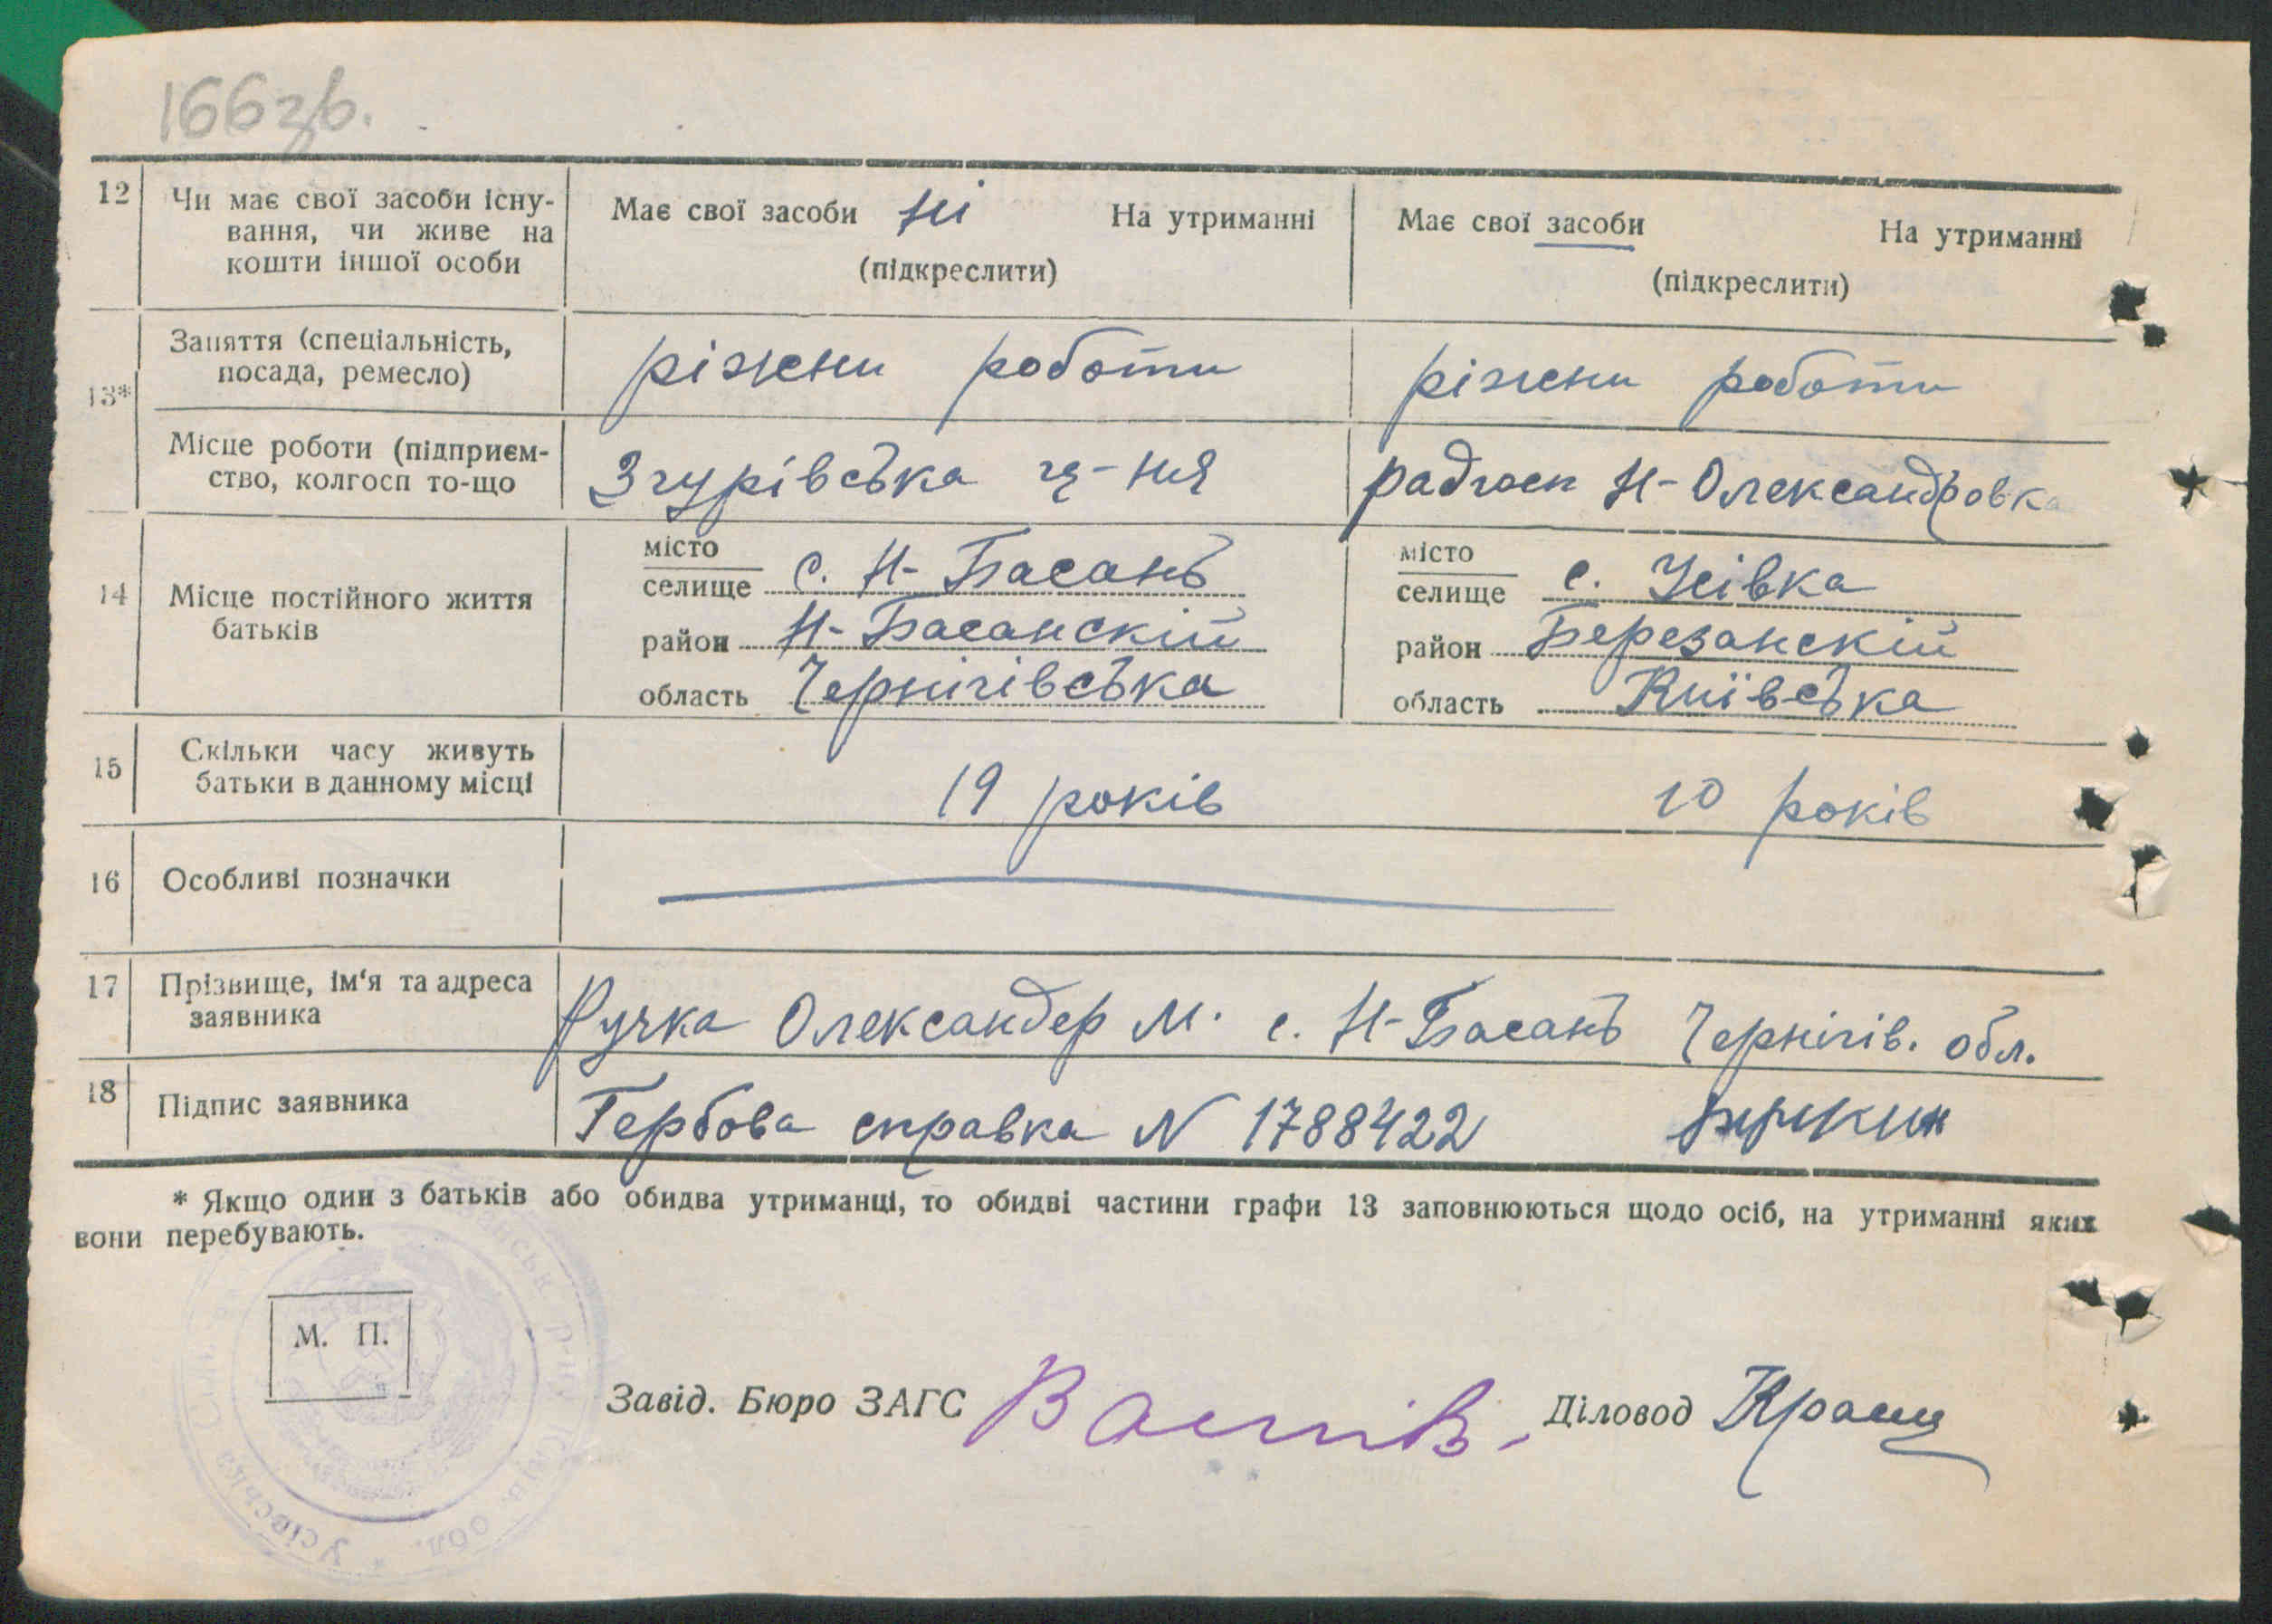 166зв.
12 Чи має свої засоби існу-
вання, чи живе на
кошти іншої особи
Має свої засоби ні На утриманні
(підкреслити)
Має свої засоби На утриманні
(підкреслити)
13*
Заняття (спеціальність,
посада, ремесло)
ріжни роботи
ріжни роботи
Місце роботи (підприєм-
ство, колгосп то-що
Згурівська
радгосп Н-Олександровка
14 Місце постійного життя
батьків
місто
селище с. Н-Басань
район Н-Басанскій
область Чернігівська
місто
селище с. Усівка
район Березанскій
область Київська
15 Скільки часу живуть
батьки в данному місці
19 років
10 років
16 Особливі позначки
17 Прізвище, ім'я та адреса
заявника
Ручка Олександер М. с. Н-Басань Чернігів. обл.
18 Підпис заявника
Гербова справка N 1788422
* Якщо один з батьків або обидва утриманці, то обидві частини графи 13 заповнюються щодо осіб, на утриманні яких
вони перебувають.
М. П.
Завід. Бюро ЗАГС
Діловод
Усівська
обл.